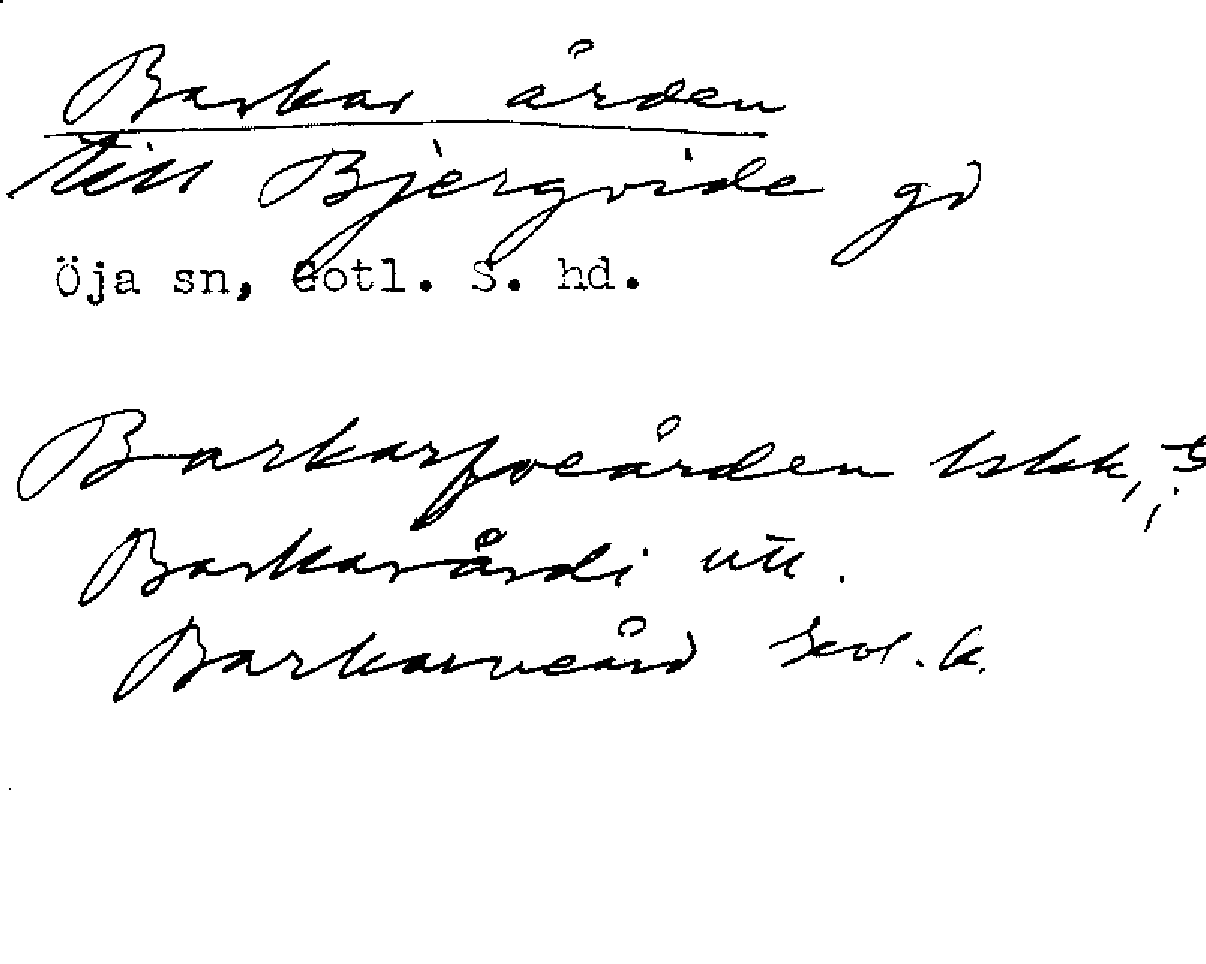 Barkar ården
till Bjergvide gd
Öja sn, Gotl. S. hd.
Barkarfveården
Barkarårdi utt.
Barkarveård